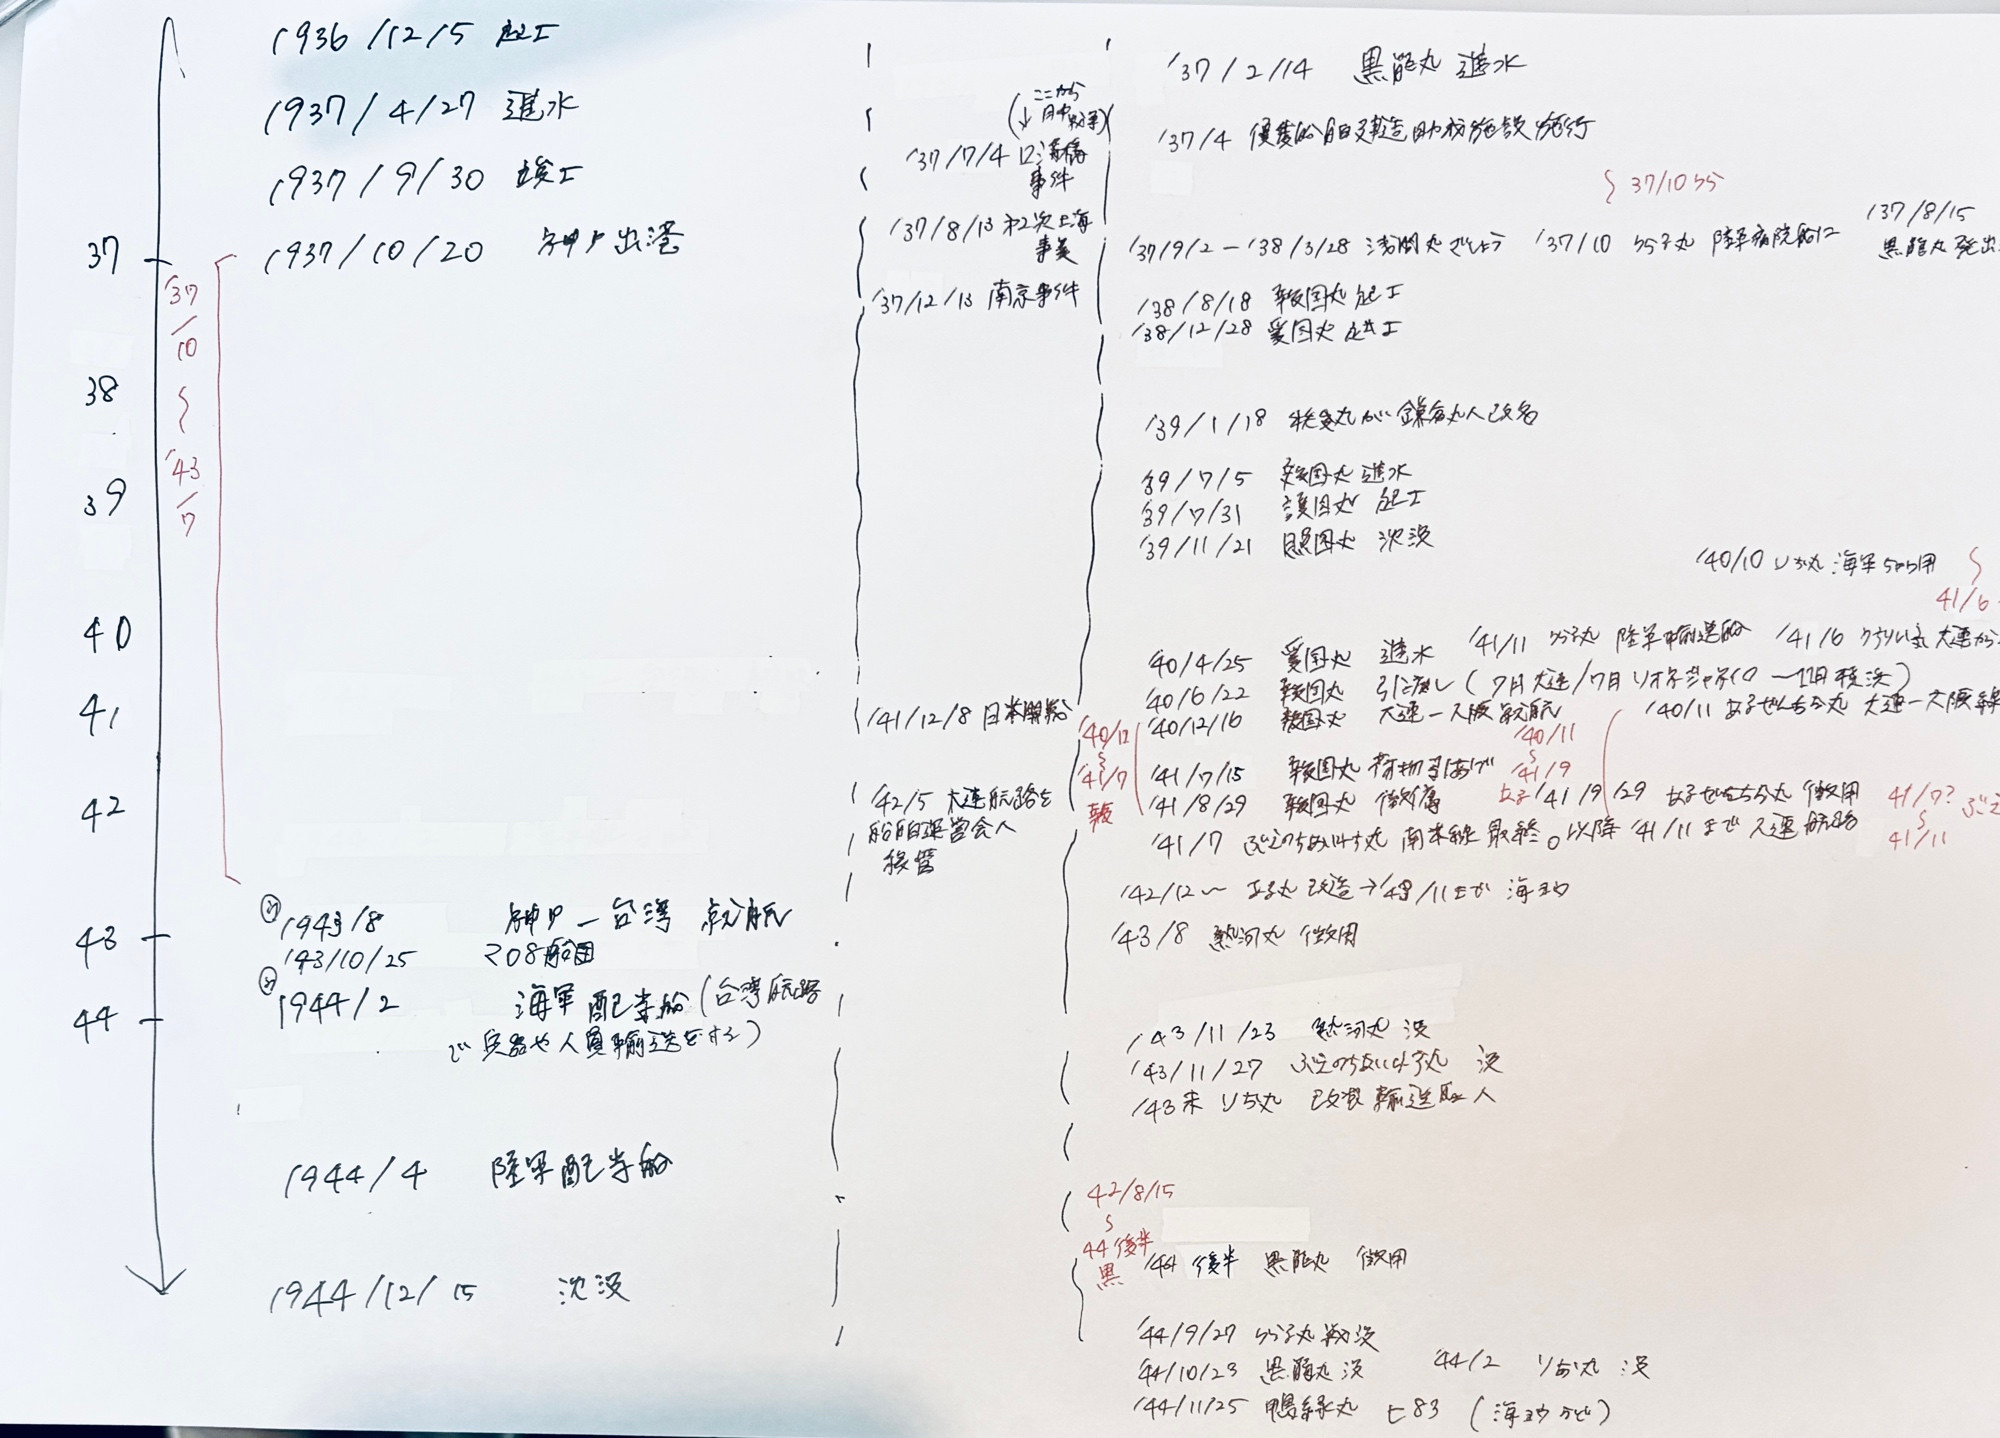 1936/12/5 起工
1937/4/27 進水
1937/9/30 竣工
1937/10/20 神戸出港
37
38
39
40
41
42
43
44
'37/10
〜
'43/7
1943/8 神戸ー台湾 就航
'43/10/25 208船団
1944/2 海軍配当船(台湾航路
で兵器や人員輸送をする)
1944/4 陸軍配当船
1944/12/15 沈没
(ここから
↓日中戦争)
'37/7/4 ロ溝橋
事件
'37/8/13 才2次上海
事変
'37/12/13 南京事件
'41/12/8 日本開戦
'42/5 大連航路を
船舶運営会へ
移管
'37/2/14 黒龍丸 進水
'37/4 優秀船舶建造助成施設施行
〜37/10 うら
'37/9/2ー'38/3/28 浅間丸ざしょう
'37/10 うらる丸 陸軍病院船に
'37/8/15
黒龍丸
'38/8/18 報国丸 起工
'38/12/28 愛国丸 起工
'39/1/18 秩父丸が鎌倉丸へ改名
'39/7/5 報国丸 進水
'39/7/31 護国丸 起工
'39/11/21 照国丸 沈没
'40/10 海軍ちょう用
〜
41/6
'40/4/25 愛国丸 進水
'41/11 うらる丸 陸軍輸送船
'41/6 大連から
'40/6/22 報国丸 引渡し(7月大連/7月リオネジャネイロ〜11月横浜)
'40/12/16 報国丸 大連ー大阪就航
'40/11 あるぜんちな丸 大連ー大阪線
'40/12
〜
'41/7
報
'40/11
〜
'41/9
'41/7/15 報国丸 荷物引あげ
'41/8/29 報国丸 徴傭
'41/9/29 あるぜんちな丸 徴用
41/7?
〜
41/11
'41/7 ぶえのすあいれす丸 南米線 最終。以降'41/11まで大連航路
'42/12〜 ある丸 改造→'43/11まで 海よう
'43/8 熱河丸 徴用
'43/11/23 熱河丸 没
'43/11/27 ぶえのすあいれす丸 没
'43末 改装 輸送
42/8/15
〜
44後半
黒
'44 後半 黒龍丸 徴用
'44/9/27 うらる丸 戦没
'44/10/23 黒龍丸 没
'44/2 丸 没
'44/11/25 鴨緑丸 ヒ83 (海ようなど)